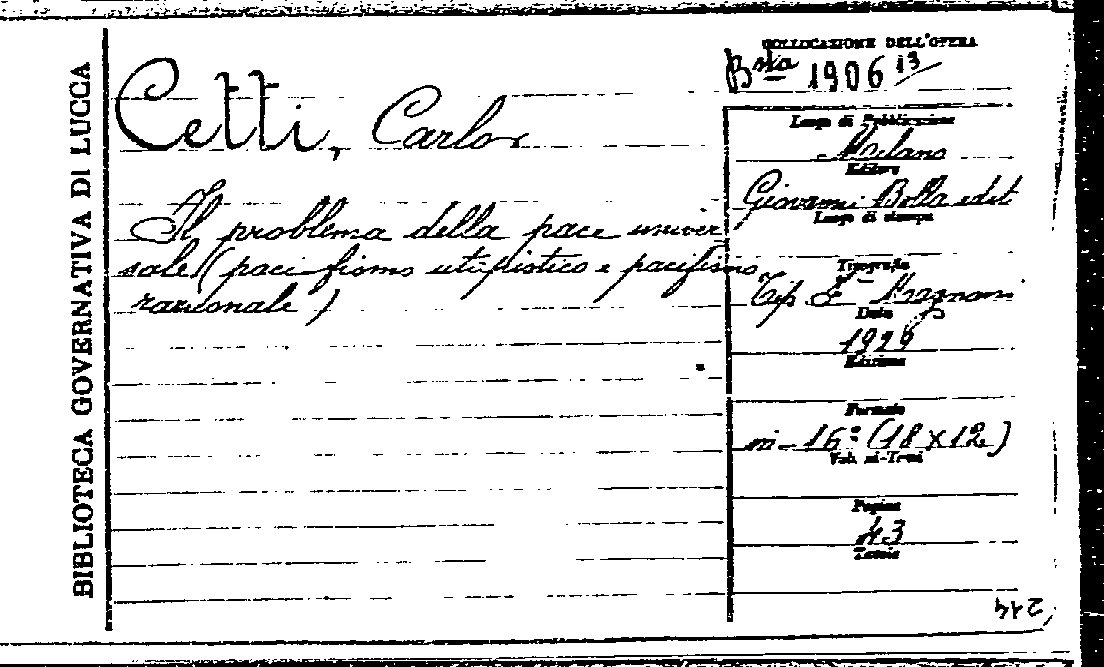 BIBLIOTECA GOVERNATIVA DI LUCCA
COLLOCAZIONE DELL'OPERA
Bsta 1906 13
Cetti, Carlo
Il problema della pace univer
sale (pacifismo utilistico e pacifismo
razionale)
Luogo di Pubblicazione
Milano
Editore
Giovanni Bolla edit
Luogo di stampa
Tipografia
Tip E
Data
1929
Edizione
Formato
in-16° (18x12)
Vol. ni-Tomi
Pagine
43
Tavole
214